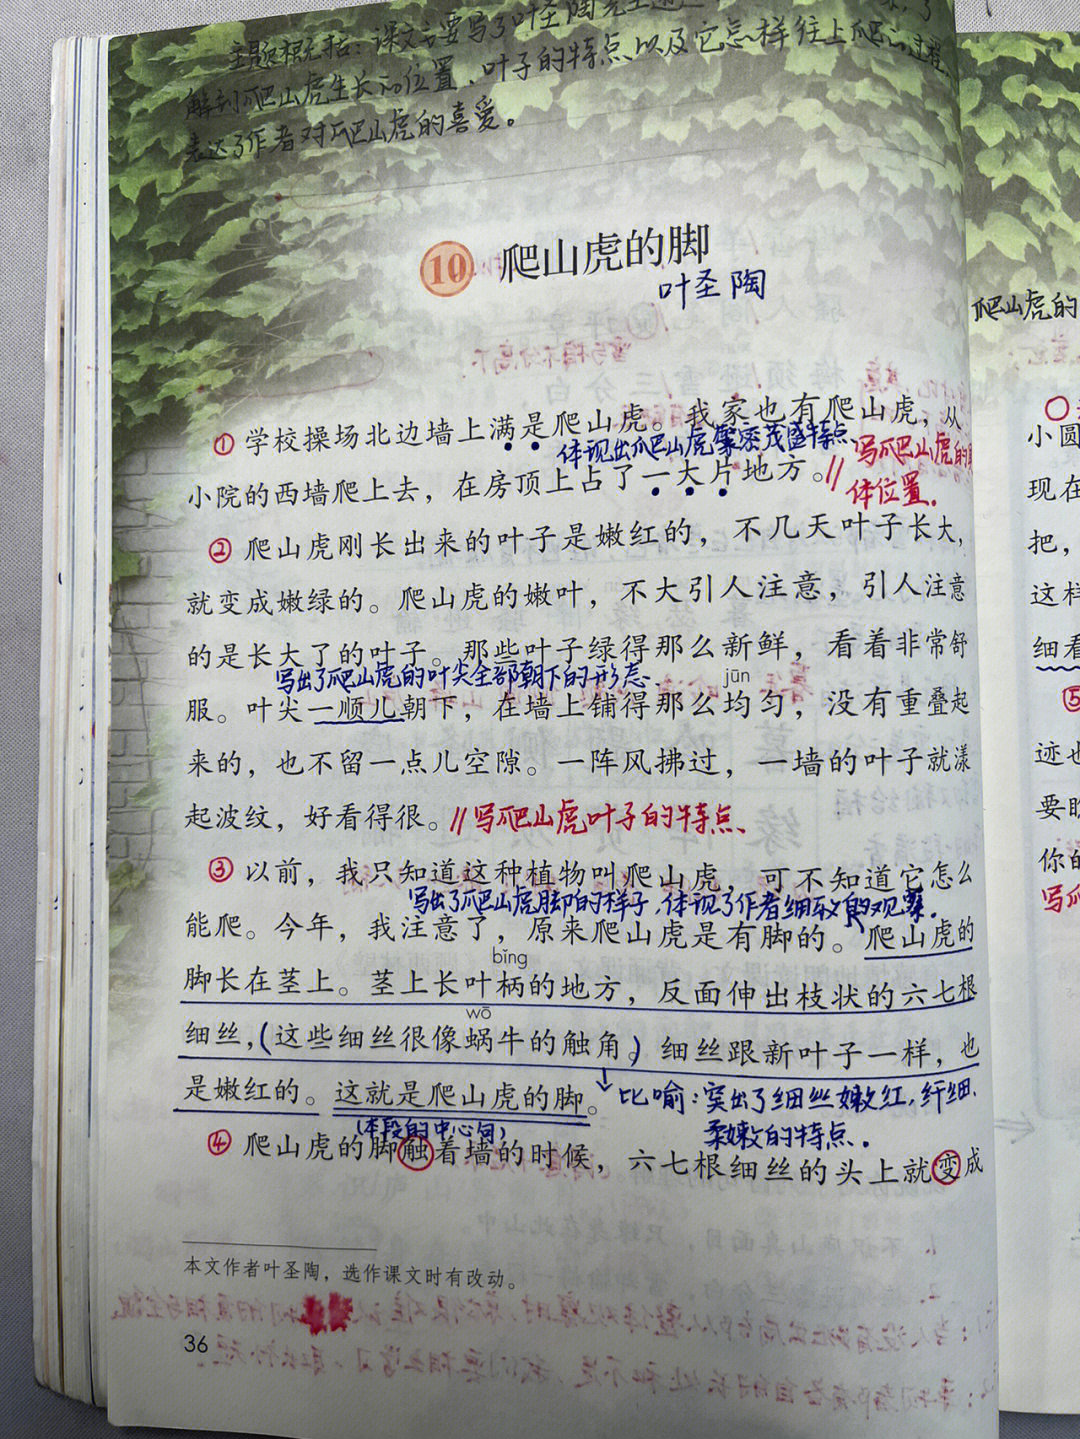 主题概括：课文主要写了叶圣陶先生
解到爬山虎生长的位置、叶子的特点以及它怎样往上爬的过程,
表达了作者对爬山虎的喜爱。
10 爬山虎的脚
叶圣陶
爬山虎的
① 学校操场北边墙上满是爬山虎。我家也有爬山虎，从
体现出爬山虎繁密茂盛特点
写爬山虎的具
小院的西墙爬上去，在房顶上占了一大片地方。//
体位置.
② 爬山虎刚长出来的叶子是嫩红的，不几天叶子长大，
就变成嫩绿的。爬山虎的嫩叶，不大引人注意，引人注意
的是长大了的叶子。那些叶子绿得那么新鲜，看着非常舒
写出了爬山虎的叶尖全部朝下的形态.
jūn
服。叶尖一顺儿朝下，在墙上铺得那么均匀，没有重叠起
来的，也不留一点儿空隙。一阵风拂过，一墙的叶子就漾
起波纹，好看得很。//写爬山虎叶子的特点、
③ 以前，我只知道这种植物叫爬山虎，可不知道它怎么
写出了爬山虎脚的样子,体现了作者细致的观察.
能爬。今年，我注意了，原来爬山虎是有脚的。爬山虎的
bǐng
脚长在茎上。茎上长叶柄的地方，反面伸出枝状的六七根
wō
细丝，(这些细丝很像蜗牛的触角。)细丝跟新叶子一样，也
是嫩红的。这就是爬山虎的脚。
比喻：突出了细丝嫩红,纤细、
(本段的中心句)
柔嫩的特点.
④ 爬山虎的脚触着墙的时候，六七根细丝的头上就变成
本文作者叶圣陶，选作课文时有改动。
36
小圆
现在
把，
这样
细看
⑤
迹也
要
你的
写爬